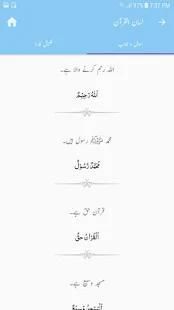 97% 7:37 PM
لسان القرآن
سوال و جواب
اللہ رحم کرنے والا ہے۔
اَللهُ رَحِيْمٌ
محمد ﷺ رسول ہیں۔
مُحَمَّدٌ رَسُوْلٌ
قرآن حق ہے۔
اَلْقُرْاٰنُ حَقٌّ
مسجد وسیع ہے۔
اَلْمَسْجِدُ وَسِيْعٌ